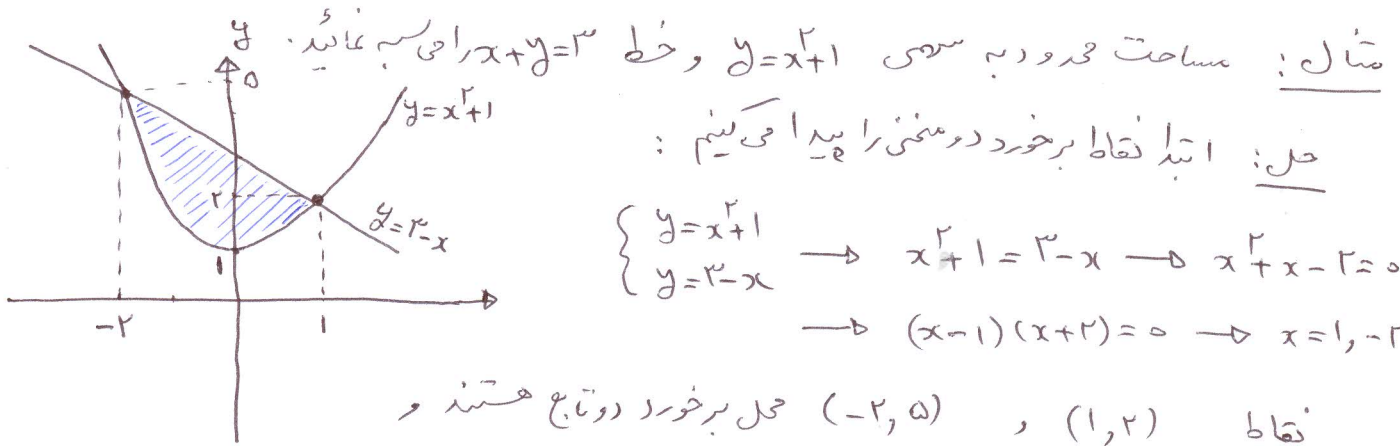 مثال: مساحت محدود به سهمی y=x²+1 و خط x+y=۳ را محاسبه نمائید.
حل: ابتدا نقاط برخورد دو منحنی را پیدا می‌کنیم:
{ y=x^۲+۱
y=۳-x → x^۲+۱=۳-x → x^۲+x-۲=۰
→ (x-۱)(x+۲)=۰ → x=۱,-۲
نقاط (۱,۲) , (-۲,۵) محل برخورد دو تابع هستند و
y
۵
y=x^۲+۱
۲
y=۳-x
۱
-۲ ۱